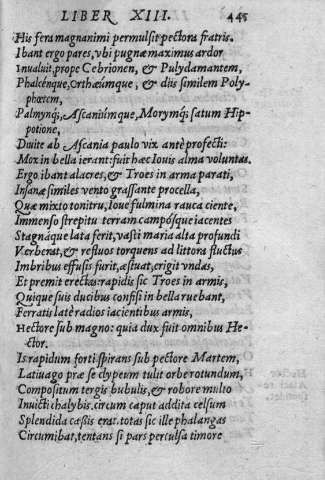 LIBER XIII. 445
His fera magnanimi permulsit pectora fratris.
Ibant ergo pares, vbi pugnæ maximus ardor
Inualuit, prope Cebrionen, & Pulydamantem,
Phalcénque, Orthæúmque, & diis similem Poly-
phœtem,
Palmynq́;, Ascaniúmque, Morymq́; satum Hip-
potione,
Diuite ab Ascania paulo vix antè profecti:
Mox in bella ierant: fuit hæc Iouis alma voluntas.
Ergo ibant alacres, & Troes in arma parati,
Insanæ similes vento grassante procella,
Quæ mixto tonitru, Ioue fulmina rauca ciente,
Immenso strepitu terram campósque iacentes
Stagnáque lata ferit, vasti maria alta profundi
Verberat, & refluos torquens ad littora fluctus
Imbribus effusis furit, æstuat, erigit vndas,
Et premit erectas: rapidis sic Troes in armis,
Quique suis ducibus confisi in bella ruebant,
Ferratis latè radios iacientibus armis,
Hectore sub magno: quia dux fuit omnibus He-
ctor.
Is rapidum forti spirans sub pectore Martem,
Latiuago præ se clypeum tulit orbe rotundum,
Compositum tergis bubulis, & robore multo
Inuicti chalybis. circum caput addita celsum
Splendida cassis erat. totas sic ille phalangas
Circumibat, tentans si pars perculsa timore